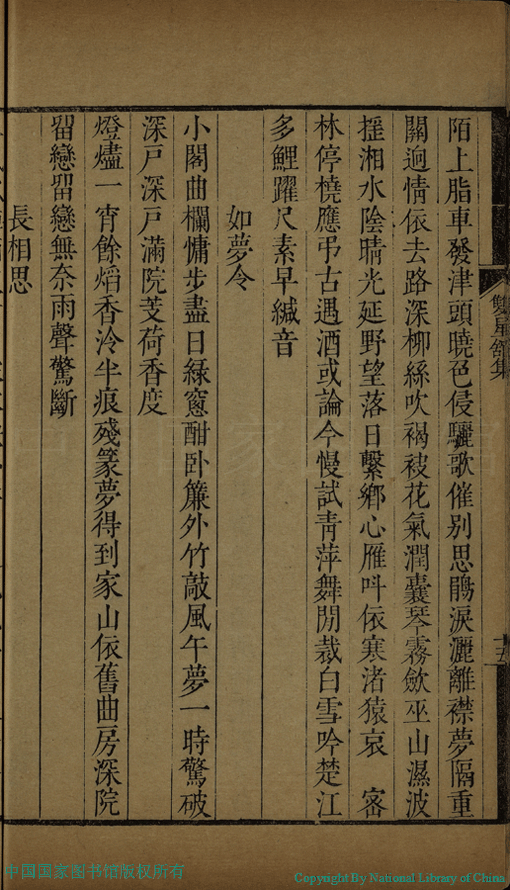 陌上脂車發津頭曉色侵驪歌催別思鵑淚灑離襟夢隔重
關迥情依去路深柳絲吹褐袚花氣潤囊琴霧斂巫山濕波
搖湘水陰晴光延野望落日繫鄉心雁呌依寒渚猿哀 密
林停橈應弔古遇酒或論今慢試靑萍舞閒裁白雪吟楚江
多鯉躍尺素早緘音
如夢令
小閣曲欄慵步盡日綠窻酣卧簾外竹敲風午夢一時驚破
深戸深戸滿院芰荷香度
燈燼一宵餘熖香泠半痕殘篆夢得到家山依舊曲房深院
留戀留戀無奈雨聲驚斷
長相思
雙星舘集
十五
中国国家图书馆版权所有
Copyright By National Library of China